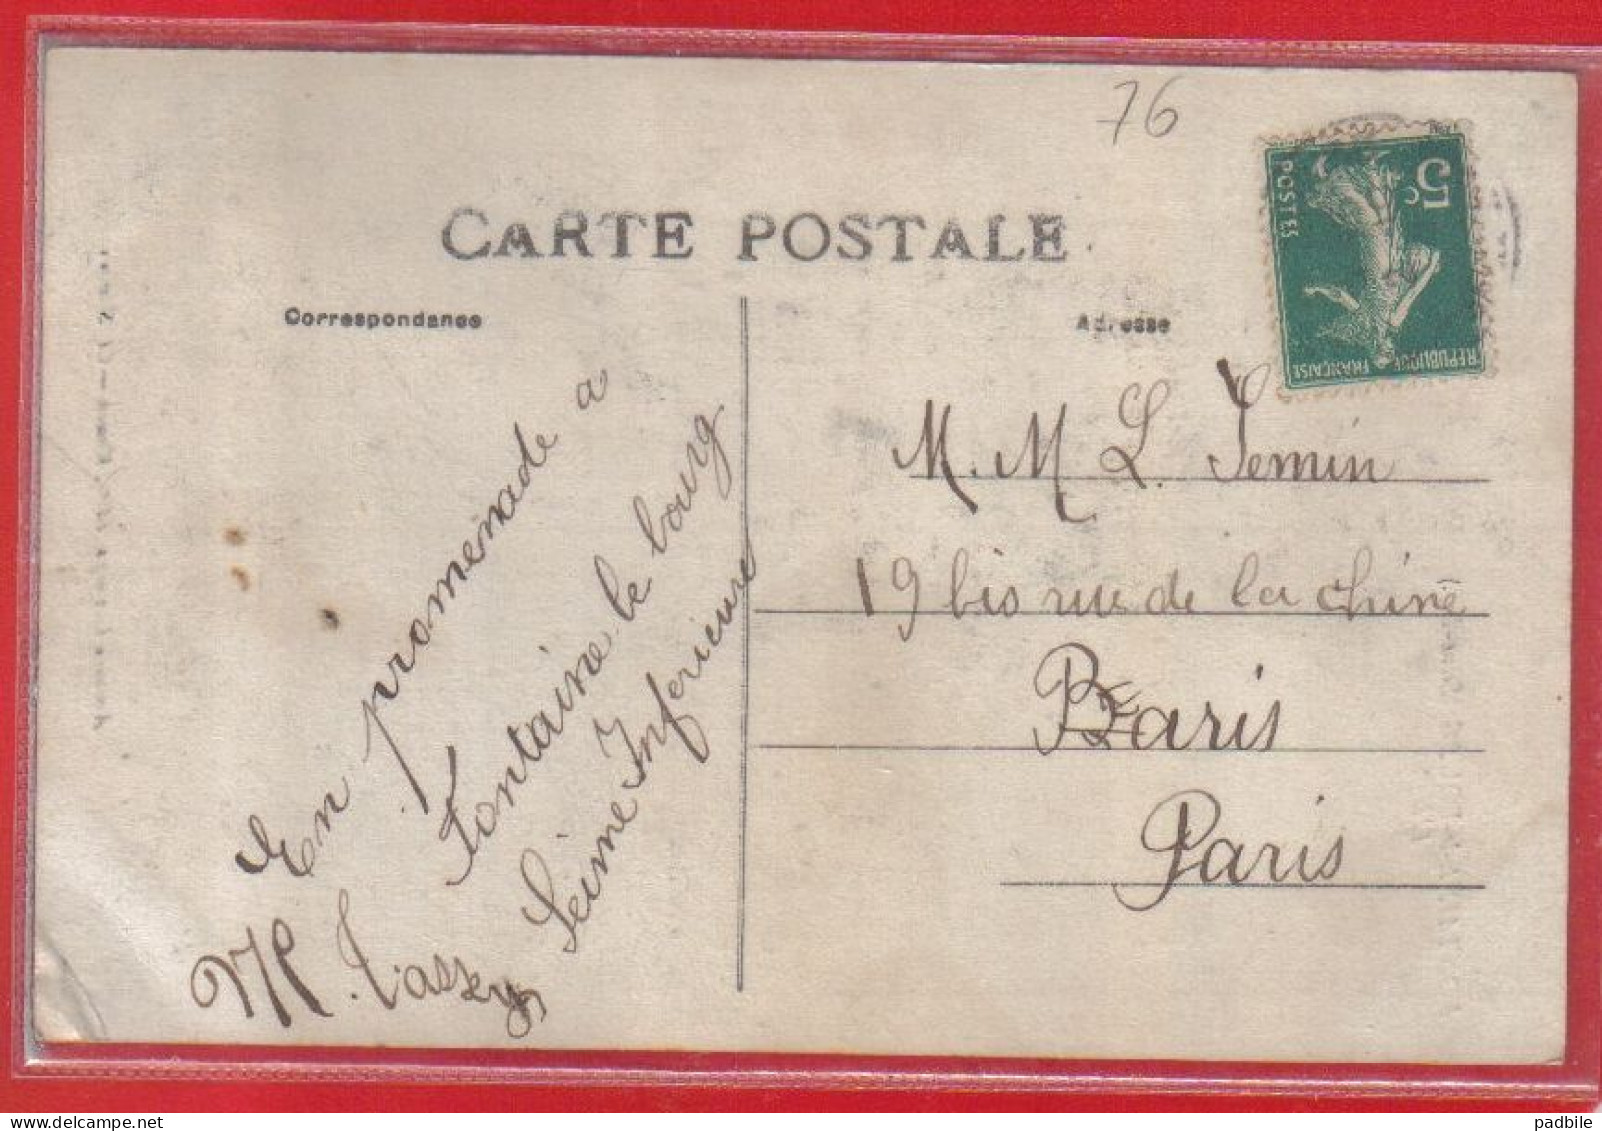 76
CARTE POSTALE
Correspondance
Adresse
5c
POSTES
REPUBLIQUE FRANÇAISE
En promenade a
Fontaine le bourg
Seine Inferieure
M. M L. Jemin
19 bis rue de la Chine
Paris
Paris
padbile